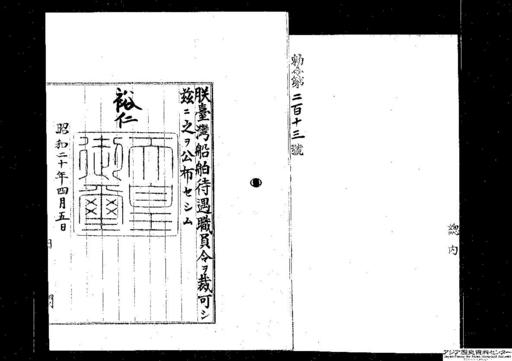 勅令第二百十三號
総内
朕臺灣船舶待遇職員令ヲ裁可シ
茲ニ之ヲ公布セシム
裕仁
天皇
御璽
昭和二十年四月五日
アジア歴史資料センター